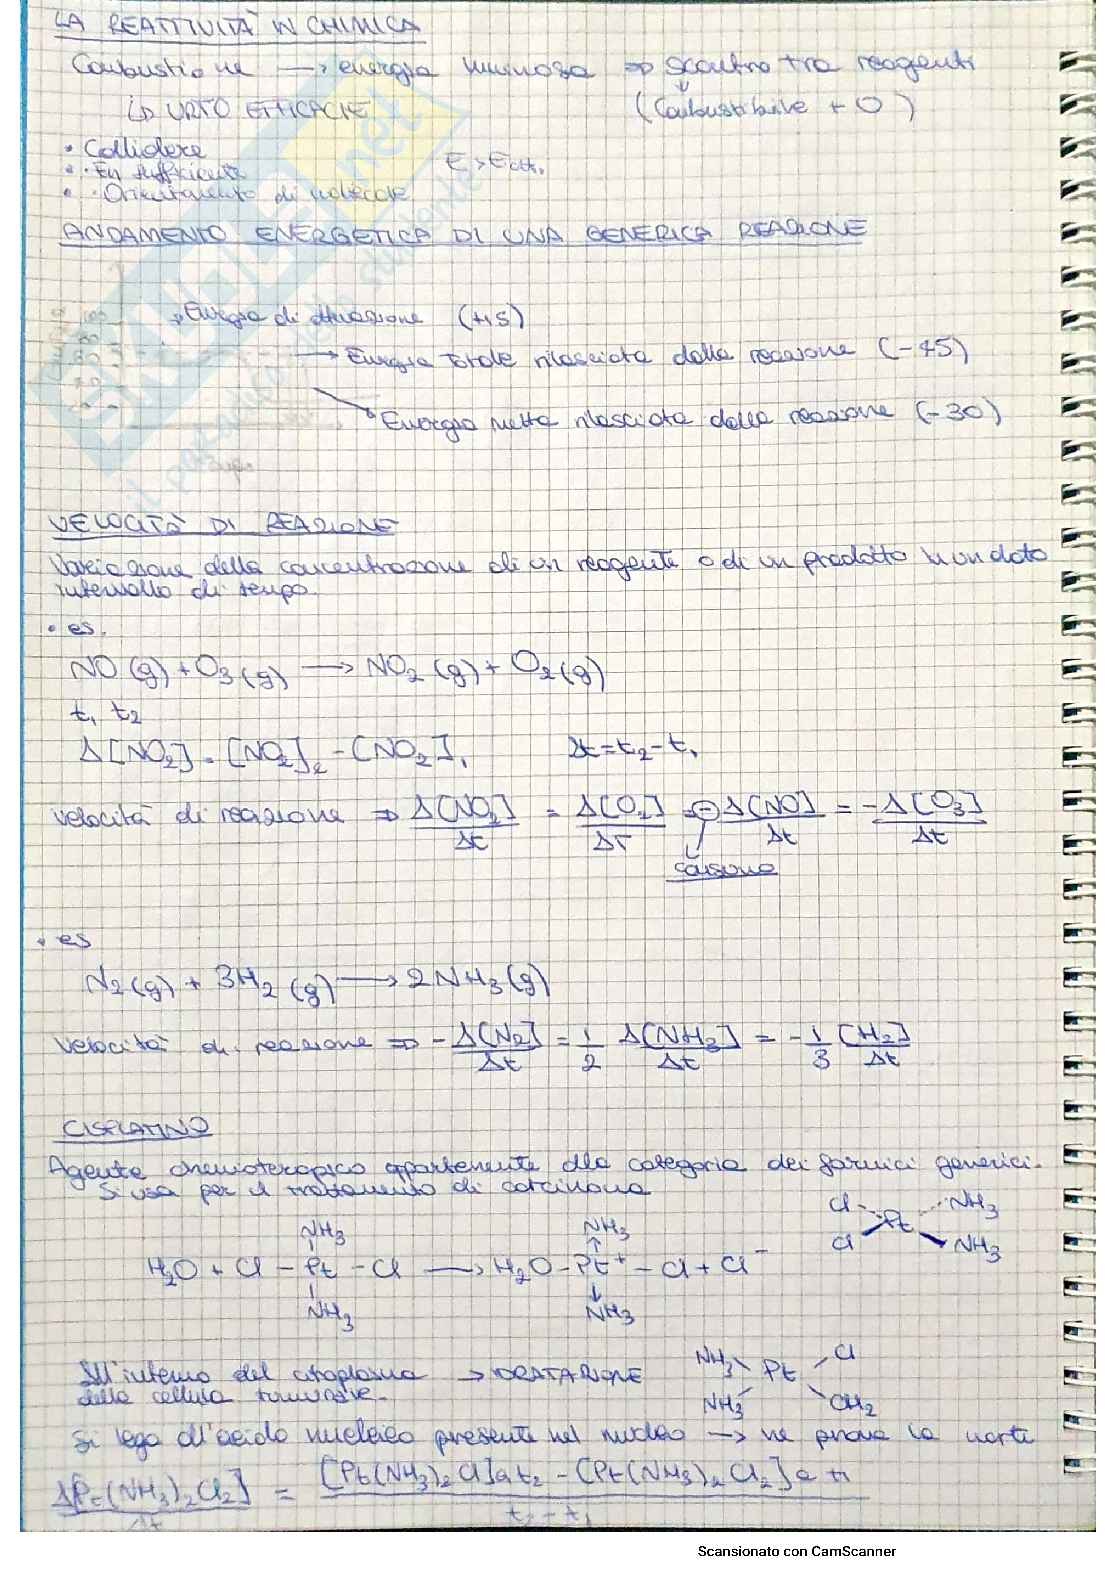 LA REATTIVITÀ IN CHIMICA
Combustione → energia luminosa ⇒ scontro tra reagenti
↳ URTO EFFICACE (Combustibile + O)
• Collidere
• En sufficiente E > Eatt.
• Orientamento di molecole
ANDAMENTO ENERGETICA DI UNA GENERICA REAZIONE
Energia di attivazione (+15)
→ Energia totale rilasciata dalla reazione (-45)
Energia netta rilasciata dalla reazione (-30)
VELOCITÀ DI REAZIONE
Variazione della concentrazione di un reagente o di un prodotto in un dato
intervallo di tempo.
• es.
NO (g) + O3 (g) → NO2 (g) + O2 (g)
t1 t2
Δ[NO2] = [NO2]2 - [NO2]1 Δt = t2 - t1
velocità di reazione ⇒ Δ[NO2]/Δt = Δ[O2]/Δt = - Δ[NO]/Δt = - Δ[O3]/Δt
• es
N2 (g) + 3H2 (g) → 2NH3 (g)
velocità di reazione ⇒ - Δ[N2]/Δt = 1/2 Δ[NH3]/Δt = - 1/3 [H2]/Δt
CISPLATINO
Agente chemioterapico appartenente alla categoria dei farmaci generici.
Si usa per il trattamento di carcinoma
Cl Pt NH3
Cl NH3
NH3 NH3
H2O + Cl - Pt - Cl → H2O - Pt+ - Cl + Cl-
NH3 NH3
All'interno del citoplasma → IDRATAZIONE
della cellula tumorale.
NH3 Pt Cl
NH3 OH2
Si lega all'acido nucleico presente nel nucleo → ne prova la morte
ΔPt(NH3)2Cl2]/Δt = [Pt(NH3)2Cl]a t2 - [Pt(NH3)2Cl2]a t1 / t2 - t1
Scansionato con CamScanner